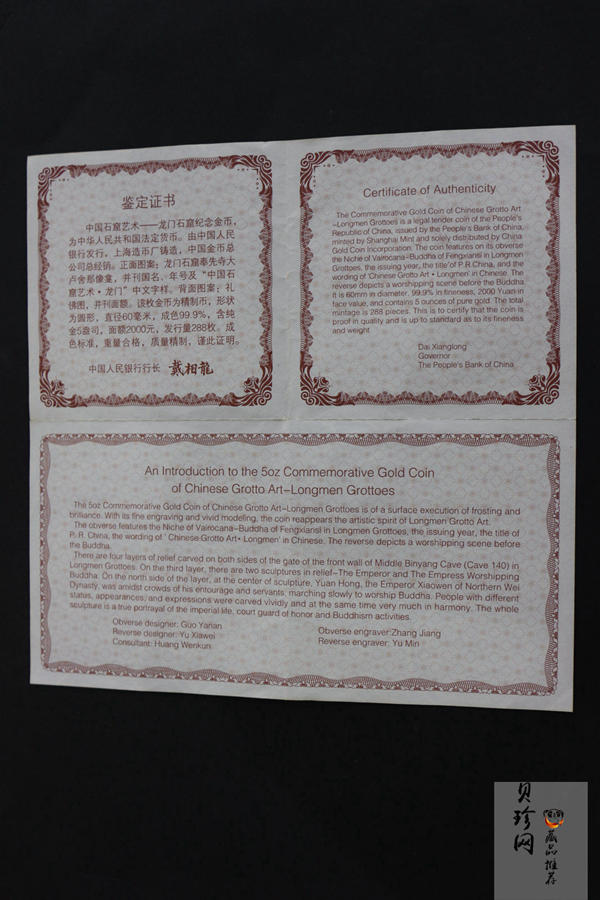 鉴定证书
中国石窟艺术——龙门石窟纪念金币,
为中华人民共和国法定货币。由中国人民
银行发行。上海造币厂铸造,中国金币总
公司总经销。正面图案:龙门石窟奉先寺大
卢舍那像龛,并刊国名、年号及“中国石
窟艺术·龙门”中文字样。背面图案:礼
佛图,并刊面额。该枚金币为精制币,形状
为圆形,直径60毫米,成色99.9%,含纯
金5盎司,面额2000元,发行量288枚。成
色标准,重量合格,质量精制,谨此证明。
中国人民银行行长 戴相龍
Certificate of Authenticity
The Commemorative Gold Coin of Chinese Grotto Art
–Longmen Grottoes is a legal tender coin of the People's
Republic of China, issued by the People's Bank of China,
minted by Shanghai Mint and solely distributed by China
Gold Coin Incorporation. The coin features on its obverse
the Niche of Vairocana–Buddha of Fengxiansi in Longmen
Grottoes, the issuing year, the title of P.R.China, and the
wording of 'Chinese Grotto Art • Longmen' in Chinese. The
reverse depicts a worshipping scene before the Buddha.
It is 60mm in diameter, 99.9% in fineness, 2000 Yuan in
face value, and contains 5 ounces of pure gold. The total
mintage is 288 pieces. This is to certify that the coin is
proof in quality and is up to standard as to its fineness
and weight
Dai Xianglong
Governor
The People's Bank of China
An Introduction to the 5oz Commemorative Gold Coin
of Chinese Grotto Art–Longmen Grottoes
The 5oz Commemorative Gold Coin of Chinese Grotto Art–Longmen Grottoes is of a surface execution of frosting and
brilliance. With its fine engraving and vivid modeling, the coin reappears the artistic spirit of Longmen Grotto Art.
The obverse features the Niche of Vairocana–Buddha of Fengxiansi in Longmen Grottoes, the issuing year, the title of
P. R. China, the wording of ' Chinese Grotto Art• Longmen' in Chinese. The reverse depicts a worshipping scene before
the Buddha.
There are four layers of relief carved on both sides of the gate of the front wall of Middle Binyang Cave (Cave 140) in
Longmen Grottoes. On the third layer, there are two sculptures in relief–The Emperor and The Empress Worshipping
Buddha. On the north side of the layer, at the center of sculpture, Yuan Hong, the Emperor Xiaowen of Northern Wei
Dynasty, was amidst crowds of his entourage and servants, marching slowly to worship Buddha. People with different
status, appearances, and expressions were carved vividly and at the same time very much in harmony. The whole
sculpture is a true portrayal of the imperial life, court guard of honor and Buddhism activities.
Obverse designer: Guo Yarian
Reverse designer: Yu Xiawei
Consultant: Huang Wenkun
Obverse engraver:Zhang Jiang
Reverse engraver: Yu Min
贝珍网
藏品推荐